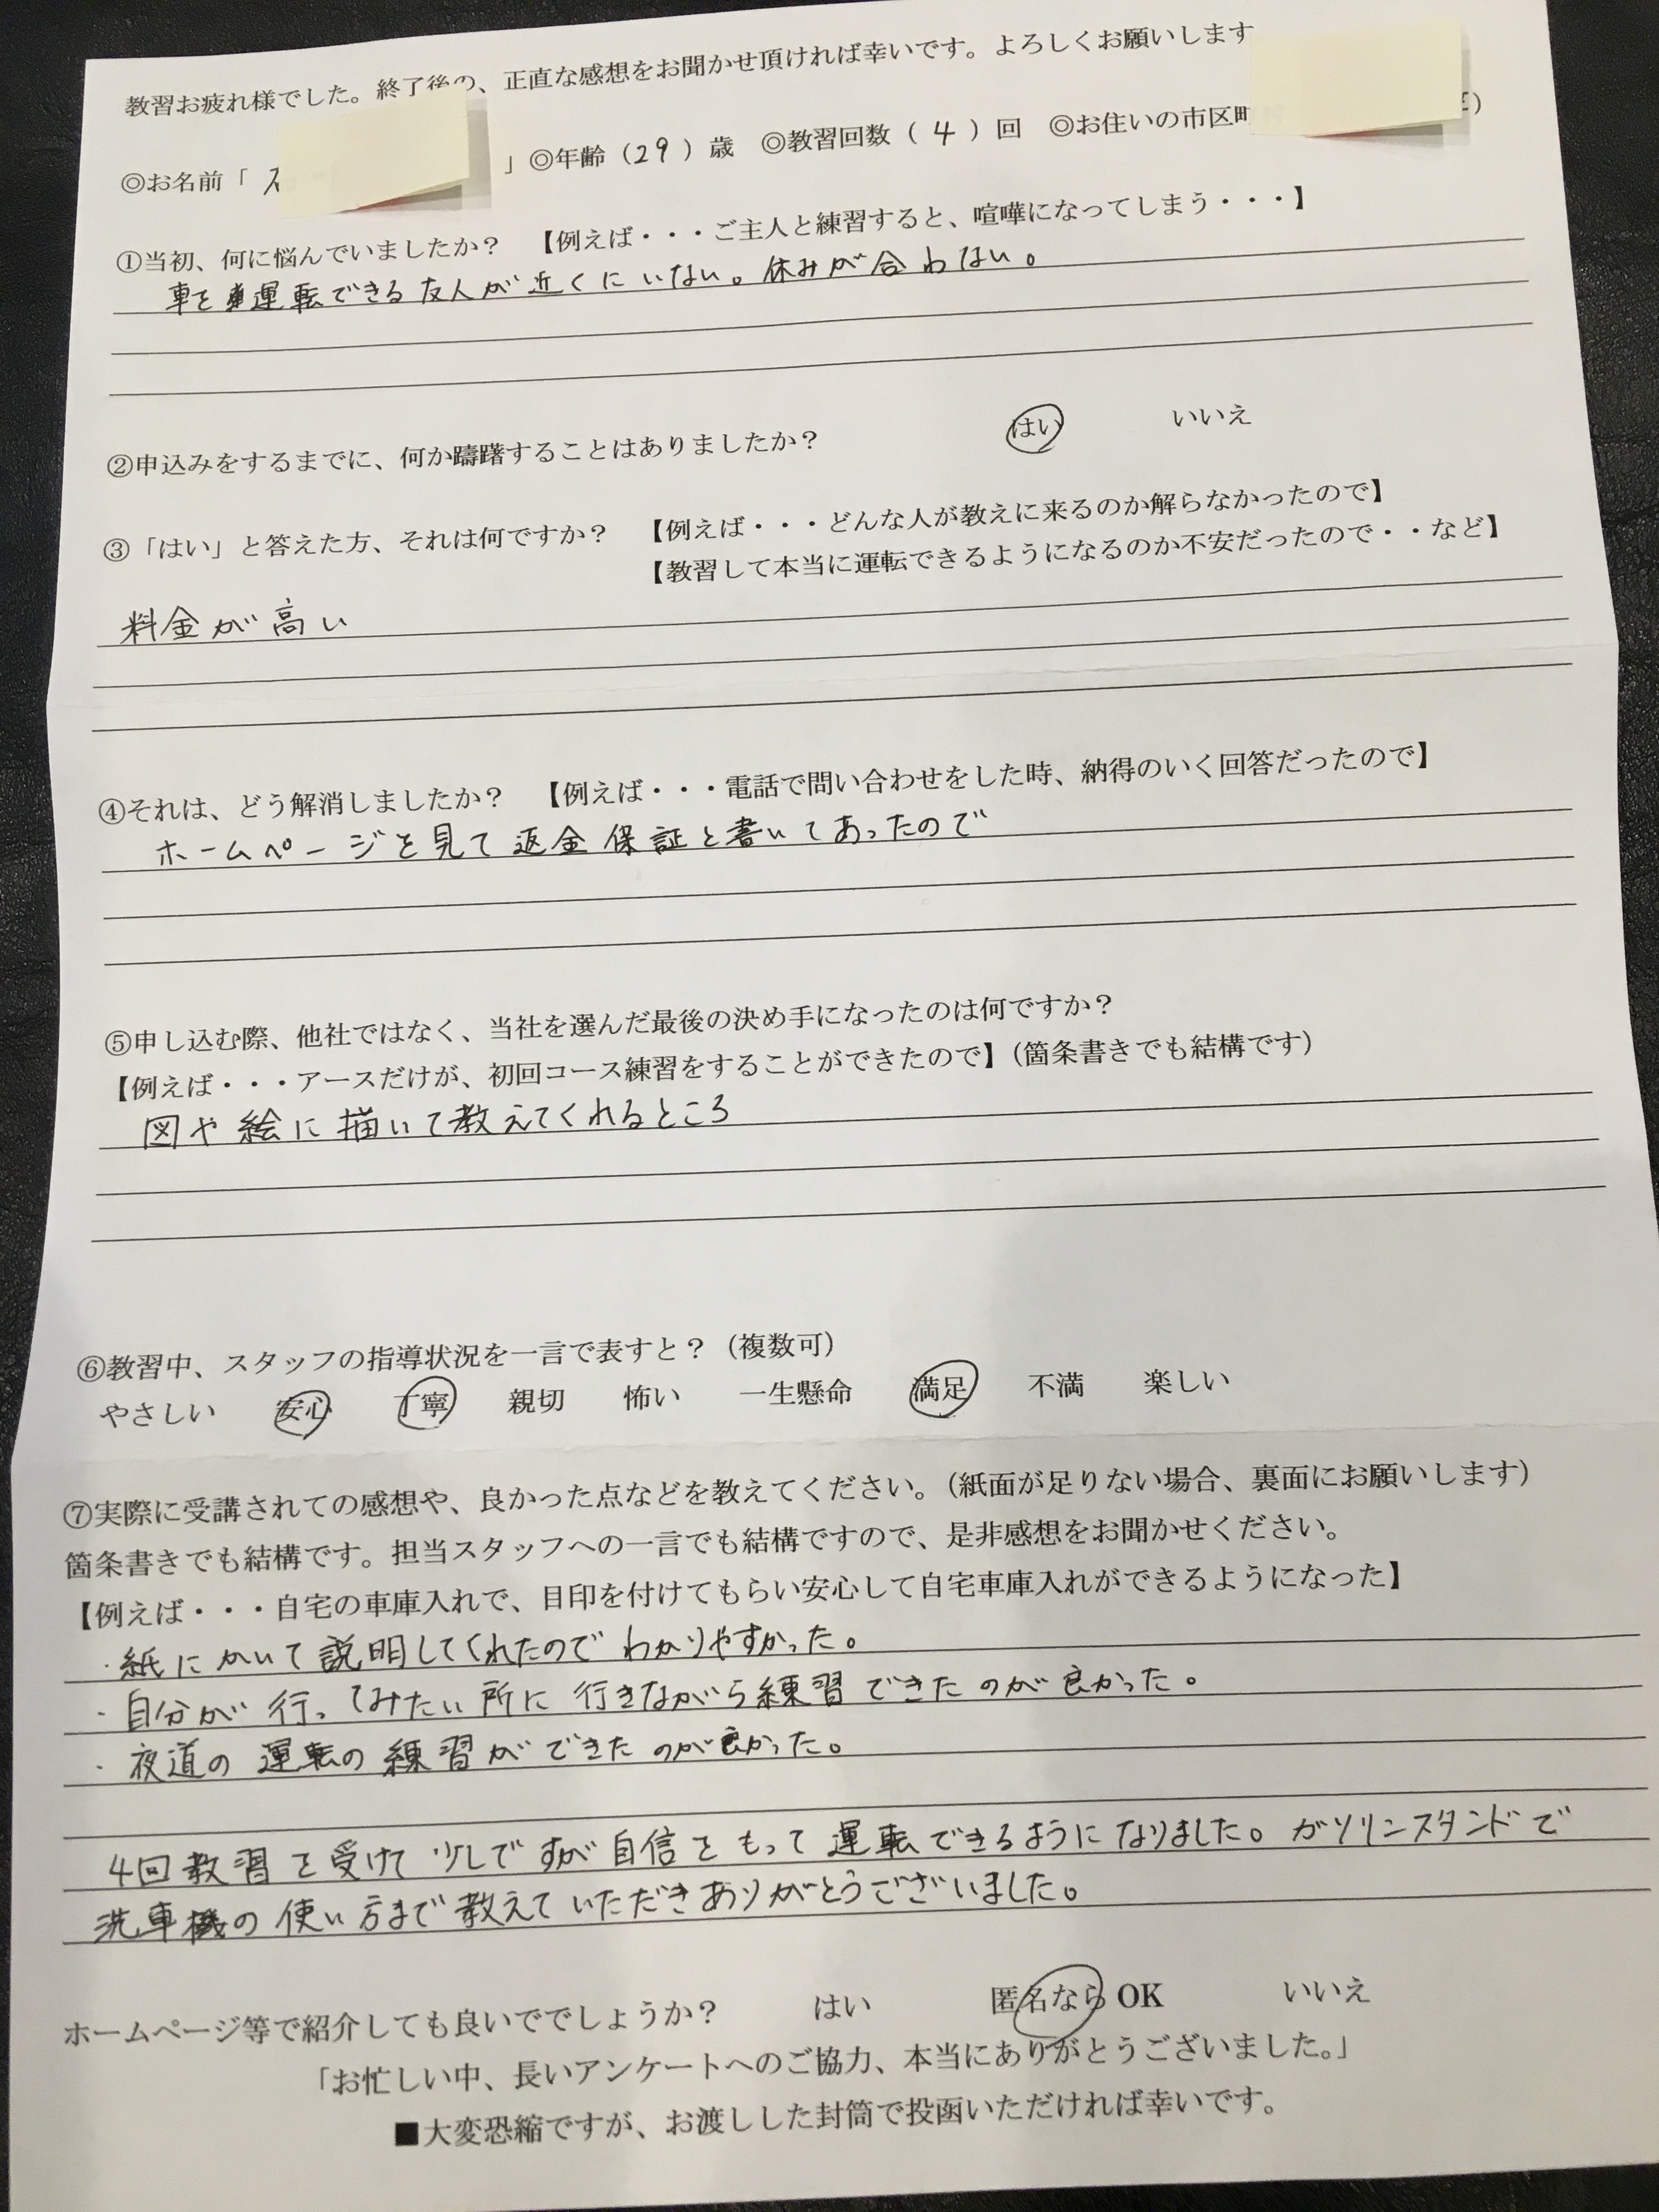 教習お疲れ様でした。終了後の、正直な感想をお聞かせ頂ければ幸いです。よろしくお願いします
◎お名前「 」◎年齢（29）歳 ◎教習回数（4）回 ◎お住いの市区町
①当初、何に悩んでいましたか？ 【例えば・・・ご主人と練習すると、喧嘩になってしまう・・・】
車を運転できる友人が近くにいない。休みが合わない。
②申込みをするまでに、何か躊躇することはありましたか？ はい いいえ
③「はい」と答えた方、それは何ですか？ 【例えば・・・どんな人が教えに来るのか解らなかったので】
【教習して本当に運転できるようになるのか不安だったので・・など】
料金が高い
④それは、どう解消しましたか？ 【例えば・・・電話で問い合わせをした時、納得のいく回答だったので】
ホームページを見て返金保証と書いてあったので
⑤申し込む際、他社ではなく、当社を選んだ最後の決め手になったのは何ですか？
【例えば・・・アースだけが、初回コース練習をすることができたので】（箇条書きでも結構です）
図や絵に描いて教えてくれるところ
⑥教習中、スタッフの指導状況を一言で表すと？（複数可）
やさしい 安心 丁寧 親切 怖い 一生懸命 満足 不満 楽しい
⑦実際に受講されての感想や、良かった点などを教えてください。（紙面が足りない場合、裏面にお願いします）
箇条書きでも結構です。担当スタッフへの一言でも結構ですので、是非感想をお聞かせください。
【例えば・・・自宅の車庫入れで、目印を付けてもらい安心して自宅車庫入れができるようになった】
・紙にかいて説明してくれたのでわかりやすかった。
・自分が行ってみたい所に行きながら練習できたのが良かった。
・夜道の運転の練習ができたのが良かった。
4回教習を受けて少しですが自信をもって運転できるようになりました。ガソリンスタンドで
洗車機の使い方まで教えていただきありがとうございました。
ホームページ等で紹介しても良いででしょうか？ はい 匿名ならOK いいえ
「お忙しい中、長いアンケートへのご協力、本当にありがとうございました。」
■大変恐縮ですが、お渡しした封筒で投函いただければ幸いです。